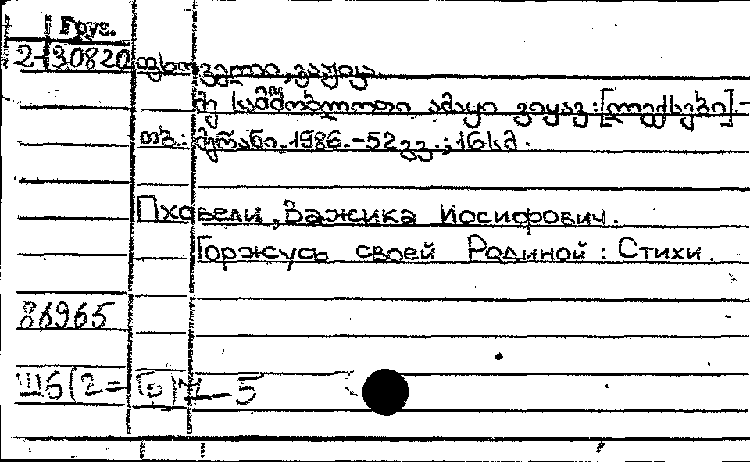 Груз.
2-30820 ფხოველი, ვაჟიკა
მე სამშობლოთი ამაყი ვიყავ: [ლექსები] -
თბ.: მერანი, 1986. - 52 გვ.; 16 სმ.
Пховели, Важика Иосифович.
Горжусь своей Родиной: Стихи.
86965
Ш6(2=Гр)7-5